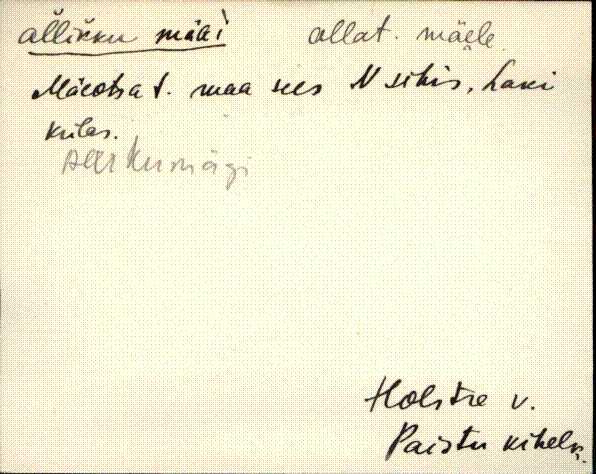 allikku mäki allat. mäele
Mäeotsa t. maa sees N sihis, Lavi
külas.
Allikumägi
Holstre v.
Paistu kihelk.